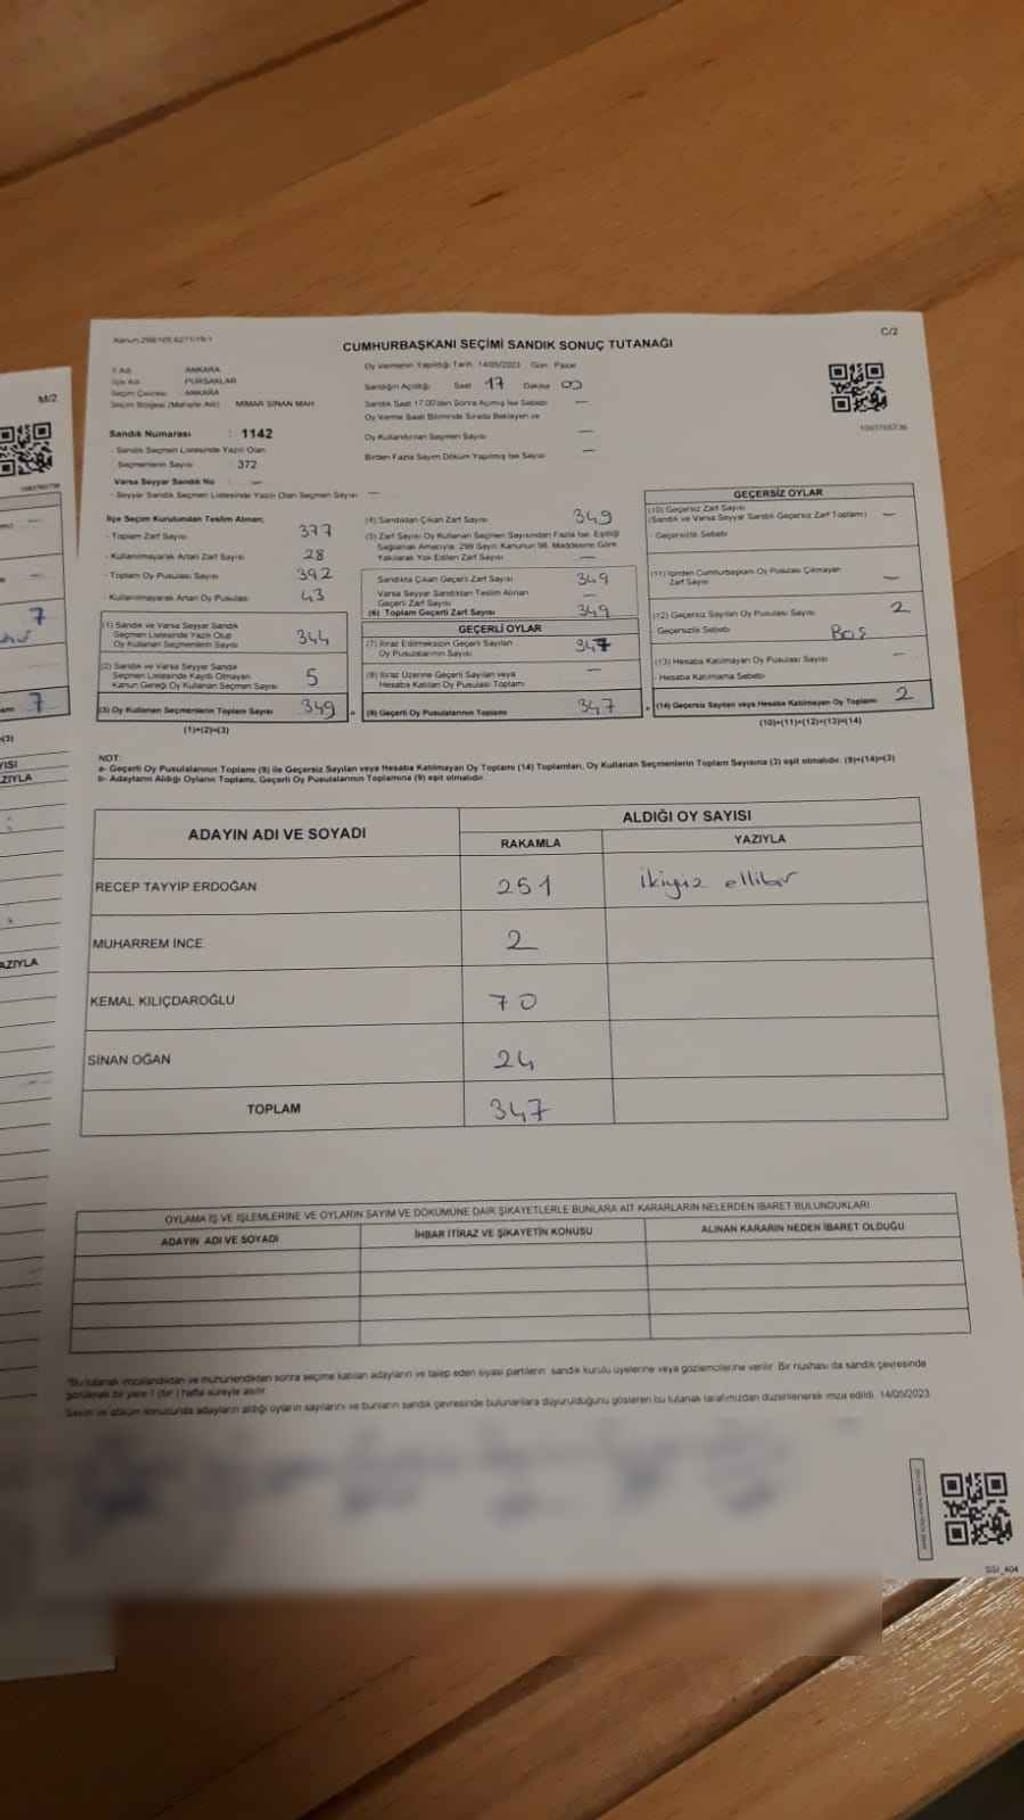 C/2
CUMHURBAŞKANI SEÇİMİ SANDIK SONUÇ TUTANAĞI
İl Adı ANKARA
İlçe Adı PURSAKLAR
Seçim Çevresi ANKARA
Seçim Bölgesi (Mahalle Adı) MİMAR SİNAN MAH
Sandık Numarası : 1142
- Sandık Seçmen Listesinde Yazılı Olan
Seçmenlerin Sayısı 372
Varsa Seyyar Sandık No : —
- Seyyar Sandık Seçmen Listesinde Yazılı Olan Seçmen Sayısı —
Oy Vermenin Yapıldığı Tarih: 14/05/2023 Gün: Pazar
Sandığın Açıldığı Saat 17 Dakika 00
Sandık Saat 17.00'den Sonra Açılmış İse Sebebi —
Oy Verme Saati Bitiminde Sırada Bekleyen ve
Oy Kullandırılan Seçmen Sayısı —
Birden Fazla Sayım Döküm Yapılmış İse Sayısı —
İlçe Seçim Kurulundan Teslim Alınan;
- Toplam Zarf Sayısı 377
- Kullanılmayarak Artan Zarf Sayısı 28
- Toplam Oy Pusulası Sayısı 392
- Kullanılmayarak Artan Oy Pusulası 43
(1) Sandık ve Varsa Seyyar Sandık
Seçmen Listesinde Yazılı Olup
Oy Kullanan Seçmenlerin Sayısı 344
(2) Sandık ve Varsa Seyyar Sandık
Seçmen Listesinde Kayıtlı Olmayan
Kanun Gereği Oy Kullanan Seçmen Sayısı 5
(3) Oy Kullanan Seçmenlerin Toplam Sayısı 349
(1)+(2)=(3)
(4) Sandıktan Çıkan Zarf Sayısı 349
(5) Zarf Sayısı Oy Kullanan Seçmen Sayısından Fazla İse, Eşitliği
Sağlamak Amacıyla, 298 Sayılı Kanunun 98. Maddesine Göre
Yakılarak Yok Edilen Zarf Sayısı
Sandıkta Çıkan Geçerli Zarf Sayısı 349
Varsa Seyyar Sandıktan Teslim Alınan
Geçerli Zarf Sayısı —
(6) Toplam Geçerli Zarf Sayısı 349
GEÇERLİ OYLAR
(7) İtiraz Edilmeksizin Geçerli Sayılan
Oy Pusulalarının Sayısı 347
(8) İtiraz Üzerine Geçerli Sayılan veya
Hesaba Katılan Oy Pusulası Toplamı —
(9) Geçerli Oy Pusulalarının Toplamı 347
GEÇERSİZ OYLAR
(10) Geçersiz Zarf Sayısı
(Sandık ve Varsa Seyyar Sandık Geçersiz Zarf Toplamı) —
Geçersizlik Sebebi
(11) İçinden Cumhurbaşkanı Oy Pusulası Çıkmayan
Zarf Sayısı —
(12) Geçersiz Sayılan Oy Pusulası Sayısı 2
Geçersizlik Sebebi Boş
(13) Hesaba Katılmayan Oy Pusulası Sayısı —
- Hesaba Katılmama Sebebi
(14) Geçersiz Sayılan veya Hesaba Katılmayan Oy Toplamı 2
(10)+(11)+(12)+(13)=(14)
NOT:
a- Geçerli Oy Pusulalarının Toplamı (9) ile Geçersiz Sayılan veya Hesaba Katılmayan Oy Toplamı (14) Toplamları, Oy Kullanan Seçmenlerin Toplam Sayısına (3) eşit olmalıdır. (9)+(14)=(3)
b- Adayların Aldığı Oyların Toplamı, Geçerli Oy Pusulalarının Toplamına (9) eşit olmalıdır.
ADAYIN ADI VE SOYADI
ALDIĞI OY SAYISI
RAKAMLA YAZIYLA
RECEP TAYYİP ERDOĞAN 251 ikiyüz ellibir
MUHARREM İNCE 2
KEMAL KILIÇDAROĞLU 70
SİNAN OĞAN 24
TOPLAM 347
OYLAMA İŞ VE İŞLEMLERİNE VE OYLARIN SAYIM VE DÖKÜMÜNE DAİR ŞİKAYETLERLE BUNLARA AİT KARARLARIN NELERDEN İBARET BULUNDUKLARI
ADAYIN ADI VE SOYADI İHBAR İTİRAZ VE ŞİKAYETİN KONUSU ALINAN KARARIN NEDEN İBARET OLDUĞU
sonra seçime katılan adayların ve talep eden siyasi partilerin sandık kurulu üyelerine veya gözlemcilerine verilir. Bir nüshası da sandık çevresinde
görülecek bir yere 1 (bir) hafta süreyle asılır.
Sayım ve döküm sonucunda adayların aldığı oyların sayılarını ve bunların sandık çevresinde bulunanlara duyurulduğunu gösteren bu tutanak tarafımızdan düzenlenerek imza edildi. 14/05/2023
M/2
7
7
YAZIYLA